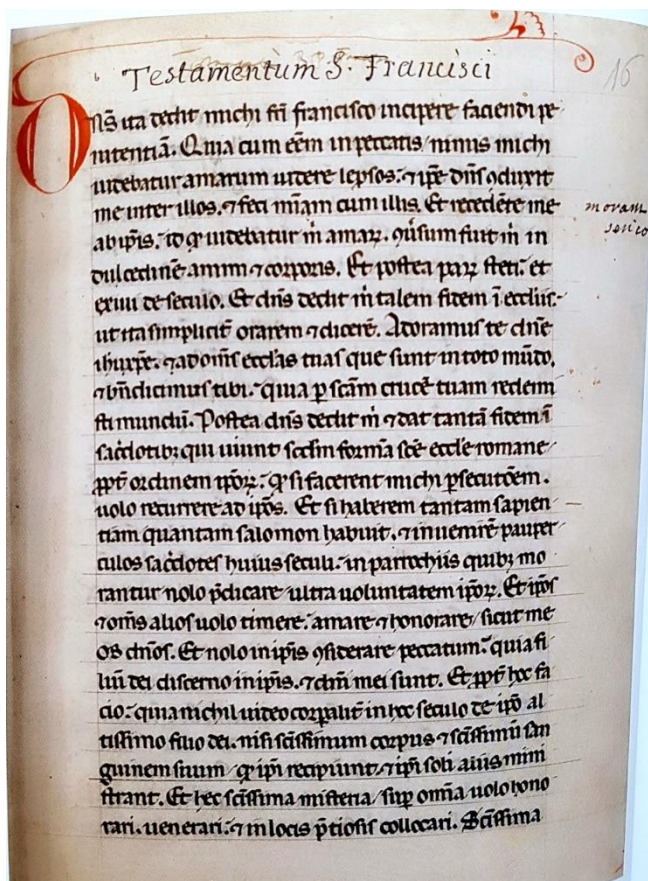 Testamentum S. Francisci
16
Dn̄s ita dedit michi fr̄i francisco incipere faciendi pe
nitentiā. Quia cum eēm in peccatis nimis michi
uidebatur amarum uidere leprosos. ⁊ ip̄e dn̄s aduxit
me inter illos. ⁊ feci mīam cum illis. Et recedēte me
ab ip̄is. id qđ uidebatur m̄ amaꝝ. ꝯuersum fuit m̄ in
dulcedinē animi ⁊ corporis. Et postea paꝝ steti. et
exiui de seculo. Et dn̄s dedit m̄ talem fidem ī ecclīis.
ut ita simplicit̄ orarem ⁊ dicerē. Adoramus te dn̄e
ihu xp̄e. ⁊ ad om̄s eccl̄as tuas que sunt in toto mūdo.
⁊ bn̄dicimus tibi. quia p scām crucē tuam redemi
sti mundū. Postea dn̄s dedit m̄ ⁊ dat tantā fidem ī
sac̄dotibꝫ qui uiuunt sc̄dm formā sc̄e eccl̄e romane
ꝓpt̄ ordinem ip̄oꝝ. qđ si facerent michi ꝑsecutōem.
uolo recurrere ad ip̄os. Et si haberem tantam sapien
tiam quantam salomon habuit. ⁊ inuenirē pauper
culos sac̄dotes huius seculi. in parrochiis quibꝫ mo
rantur nolo p̄dicare ultra uoluntatem ip̄oꝝ. Et ip̄os
⁊ om̄s alios uolo timere. amare ⁊ honorare sicut me
os dn̄os. Et nolo in ip̄is ꝯsiderare peccatum. quia fi
lium dei discerno in ip̄is. ⁊ dn̄i mei sunt. Et ꝓpt̄ hoc fa
cio. quia nichil uideo corꝑalit̄ in hoc seculo de ip̄o al
tissimo filio dei. nisi sc̄issimum corpus ⁊ sc̄issimū san
guinem suum qđ ip̄i recipiunt. ⁊ ip̄i soli aliis mini
strant. Et hec sc̄issima misteria suꝑ om̄ia uolo hono
rari. uenerari. ⁊ in locis p̄tiosis collocari. Sc̄issima
moram